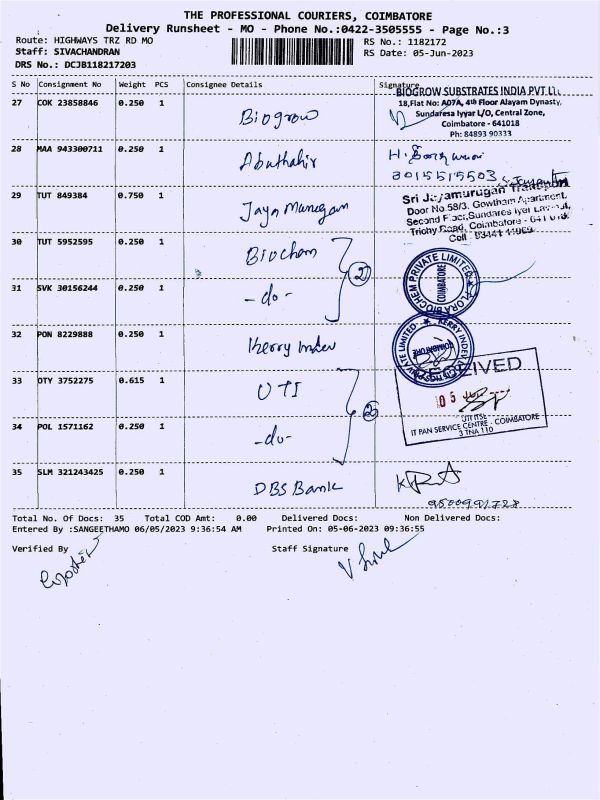 THE PROFESSIONAL COURIERS, COIMBATORE
Delivery Runsheet - MO - Phone No.:0422-3505555 - Page No.:3
Route: HIGHWAYS TRZ RD MO RS No.: 1182172
Staff: SIVACHANDRAN RS Date: 05-Jun-2023
DRS No.: DCJB118217203
S No Consignment No Weight PCS Consignee Details Signature
BIOGROW SUBSTRATES INDIA PVT LTD
27 COK 23858846 0.250 1 Biogrow 18,Flat No: A07A, 4th Floor Alayam Dynasty,
Sundaresa Iyyar L/O, Central Zone,
Coimbatore - 641018
Ph: 84893 90333
28 MAA 943300711 0.250 1 Abuthahir
8015515503
29 TUT 849384 0.750 1 Jaya Murugan Sri Jayamurugan Transport
Door No.58/3, Gowtham Apartment,
Second Floor, Sundares Iyer Lay-out,
Trichy Road, Coimbatore -
Cell :
30 TUT 5952595 0.250 1 Biochem 2
31 SVK 30156244 0.250 1 -do- FLORA BIOCHEM PRIVATE LIMITED COIMBATORE
32 PON 8229888 0.250 1 Kerry Indev KERRY INDEV PRIVATE LIMITED COIMBATORE
33 OTY 3752275 0.615 1 UTI 2 RECEIVED
05 JUN
34 POL 1571162 0.250 1 -do- UTIITSL
IT PAN SERVICE CENTRE - COIMBATORE
3 TNA 110
35 SLM 321243425 0.250 1 DBS Bank
9500991728
Total No. Of Docs: 35 Total COD Amt: 0.00 Delivered Docs: Non Delivered Docs:
Entered By :SANGEETHAMO 06/05/2023 9:36:54 AM Printed On: 05-06-2023 09:36:55
Verified By Staff Signature